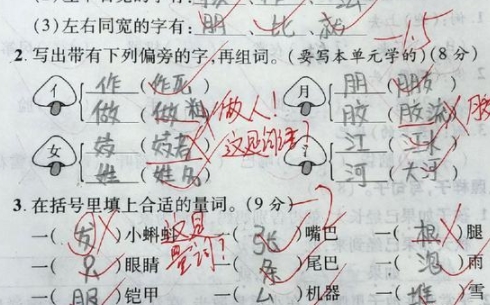 (3)左右同宽的字有: 朋 、 比 、
-1.5
2. 写出带有下列偏旁的字,再组词。(要写本单元学的)(8分)
亻 作 (作瓦) 月 朋 (朋友)
做 (做 ) 做人! 胶 (胶流) 胶
女 妓 (妓者) 这是谁? 氵 江 (江水)
姓 (姓 ) 河 (大河)
3. 在括号里填上合适的量词。(9分)
一( 发 )小蝌蚪 这是量词? 一( 张 )嘴巴 一( 根 )腿
一( 只 )眼睛 一( 条 )尾巴 一( 泡 )雨
一( 服 )铠甲 一( )机器 一( 堆 )雪